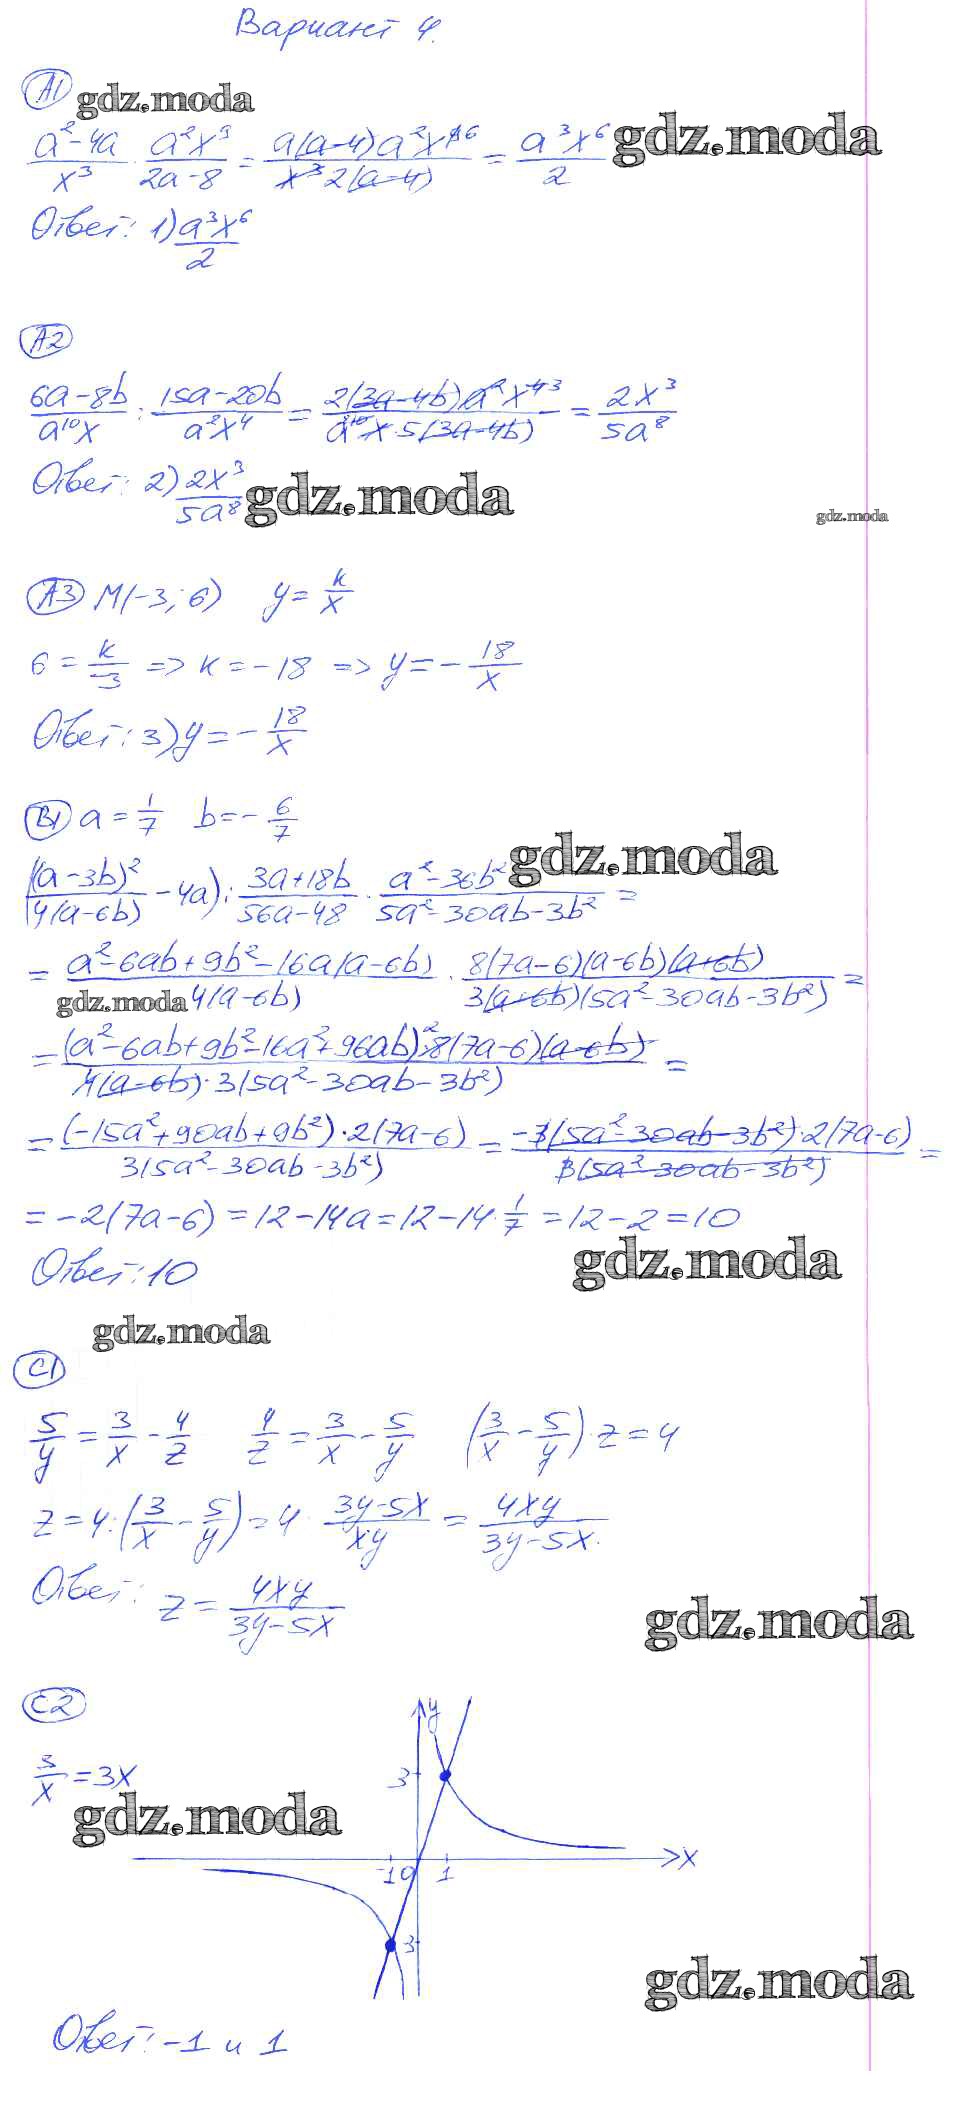 Вариант 4.
A1 gdz.moda
(a²-4a)/x³ · (a²x⁹)/(2a-8) = (a(a-4)a²x⁹⁶)/(x³2(a-4)) = (a³x⁶)/2 gdz.moda
Ответ: 1) (a³x⁶)/2
A2
(6a-8b)/(a¹⁰x) : (15a-20b)/(a²x⁴) = (2(3a-4b)a²x⁴³)/(a¹⁰x·5(3a-4b)) = (2x³)/(5a⁸)
Ответ: 2) (2x³)/(5a⁸) gdz.moda
gdz.moda
A3 M(-3; 6) y = k/x
6 = k/-3 => k = -18 => y = -18/x
Ответ: 3) y = -18/x
B1 a = 1/7 b = -6/7
gdz.moda
((a-3b)²/(4(a-6b)) - 4a) : (3a+18b)/(56a-48) · (a²-36b²)/(5a²-30ab-3b²) =
= (a²-6ab+9b²-16a(a-6b))/(4(a-6b)) · (8(7a-6)(a-6b)(a+6b))/(3(a+6b)(5a²-30ab-3b²)) =
gdz.moda
= ((a²-6ab+9b²-16a²+96ab)·²8(7a-6)(a-6b))/(4(a-6b)·3(5a²-30ab-3b²)) =
= ((-15a²+90ab+9b²)·2(7a-6))/(3(5a²-30ab-3b²)) = (-3(5a²-30ab-3b²)·2(7a-6))/(3(5a²-30ab-3b²)) =
= -2(7a-6) = 12-14a = 12-14·1/7 = 12-2 = 10
gdz.moda
Ответ: 10
gdz.moda
C1
5/y = 3/x - 4/z 4/z = 3/x - 5/y (3/x - 5/y)·z = 4
z = 4:(3/x - 5/y) = 4 · (3y-5x)/(xy) = (4xy)/(3y-5x).
Ответ: z = (4xy)/(3y-5x)
gdz.moda
C2
y
3/x = 3x
3
gdz.moda
-1 0 1 x
3
gdz.moda
Ответ: -1 и 1